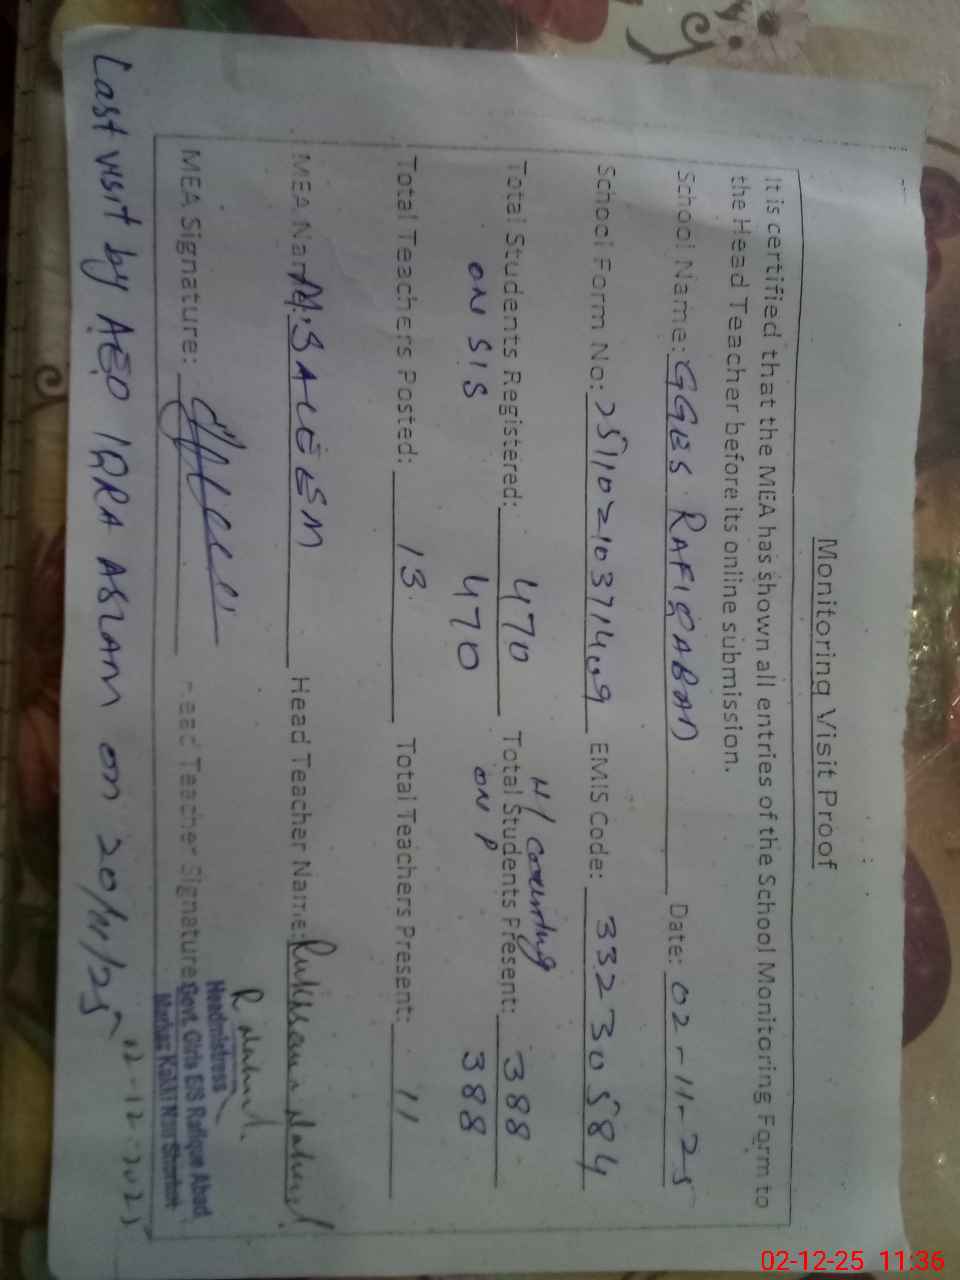 Monitoring Visit Proof
It is certified that the MEA has shown all entries of the School Monitoring Form to
the Head Teacher before its online submission.
School Name: GGES RAFIQABAD Date: 02-11-25
School Form No: 25110210371409 EMIS Code: 33230584
H/counting
Total Students Registered: 470 Total Students Present: 388
ON SIS 470 ON P 388
Total Teachers Posted: 13 Total Teachers Present: 11
MEA Name: M. SALEEM Head Teacher Name: Rukhsana
MEA Signature: Head Teacher Signature:
Headmistress
Govt. Girls E/S Rafique Abad
Markaz Kakki Nau Shorkot
Last visit by AEO IQRA ASLAM on 20/11/25
02-12-25 11:36